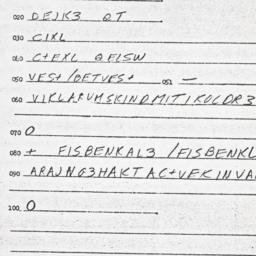 020 DEJK3 QT
030 CIXL
040 C+EXL QFLSW
050 VES+/OETVES+ 051 —
060 VIKLARUMSKINDMITIKOLDR3
070 O
080 + FISBENKAL3 /FISBENKL
090 ARAJNG3HAKTAC+VFKINVA
100 O